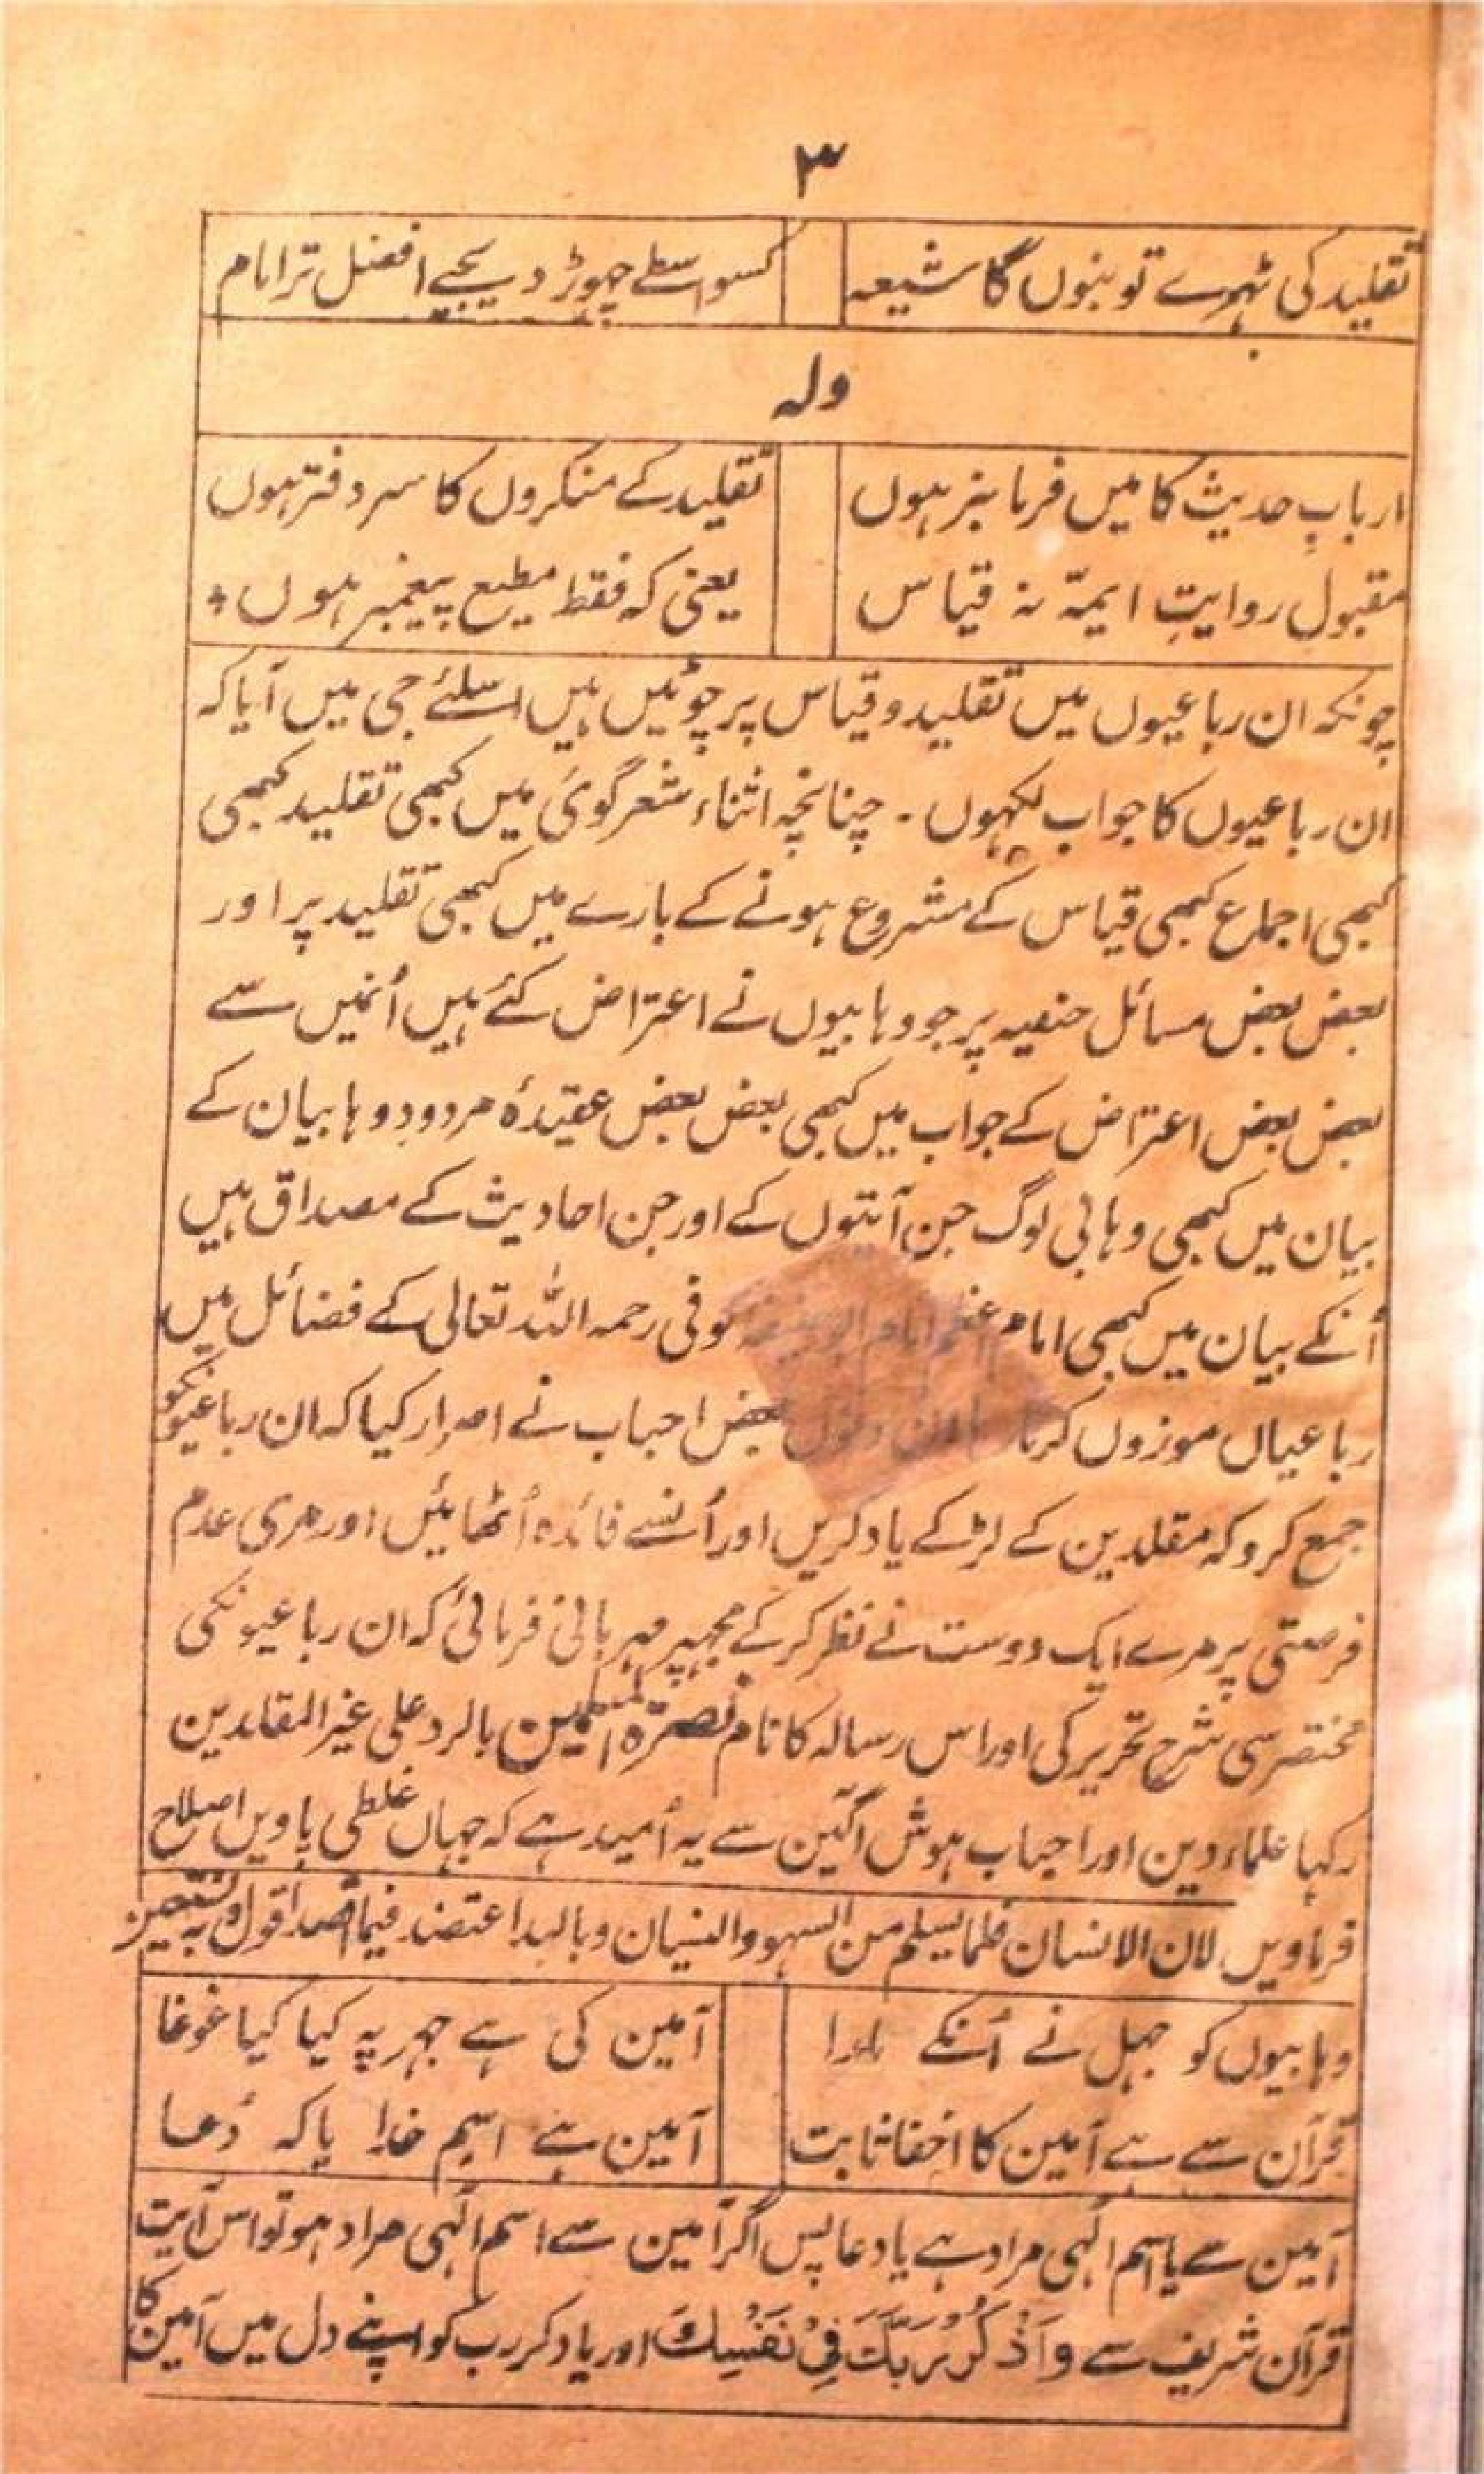 ۳
تقلید کی ٹہرے تو بنوں گا شیعہ کسواسطے چھوڑ دیجیے افضل تر امام
ولہ
ارباب حدیث کا میں فرمانبر ہوں تقلید کے منکروں کا سر دفتر ہوں
مقبول روایت ایمہّ نہ قیاس یعنی کہ فقط مطیع پیغمبر ہوں
چونکہ ان رباعیوں میں تقلید و قیاس پر چوٹیں ہیں اسلئے جی میں آیا کہ
ان رباعیوں کا جواب لکہوں ۔ چنانچہ اثناء شعر گوئی میں کبھی تقلید کبھی
کبھی اجماع کبھی قیاس کے مشروع ہونے کے بارے میں کبھی تقلید پر اور
بعض بعض مسائل حنفیہ پر جو وہابیوں نے اعتراض کئے ہیں اُنمیں سے
بعض بعض اعتراض کے جواب میں کبھی بعض بعض عقیدۂ مردود وہابیان کے
بیان میں کبھی وہابی لوگ جن آیتوں کے اور جن احادیث کے مصداق ہیں
اُنکے بیان میں کبھی امام کوفی رحمہ اللہ تعالی کے فضائل میں
رباعیاں موزوں کرتا بعض احباب نے اصرار کیا کہ ان رباعیونکو
جمع کرو کہ مقلدین کے لڑکے یاد کریں اور اُنسے فائدہ اُٹھائیں اور مری عدم
فرصتی پر مرے ایک دوست نے نظر کر کے مجہپر مہربانی فرمائی کہ ان رباعیونکی
مختصر سی شرح تحریر کی اور اس رسالہ کا نام نصرۃ بالرد علی غیر المقلدین
رکہا علماء دین اور احباب ہوش آگین سے یہ اُمید ہے کہ جہاں غلطی پاویں اصلاح
فرماویں لان الانسان قلما یسلم من السہو والنسیان وباللہ اعتضد فیما اقول وبہ نستعین
وہابیوں کو جہل نے اُنکے مارا آمین کی ہے جہر پہ کیا کیا غوغا
قرآن سے ہے آمین کا اخفا ثابت آمین ہے اسم خدا یا کہ دُعا
آمین سے یا اسم الٰہی مراد ہے یا دعا پس اگر آمین سے اسم الٰہی مراد ہو تو اس آیت
قرآن شریف سے وَاَذْکُرْ رَبَّکَ فِیْ نَفْسِکَ اور یاد کر رب کو اپنے دل میں آمین کا